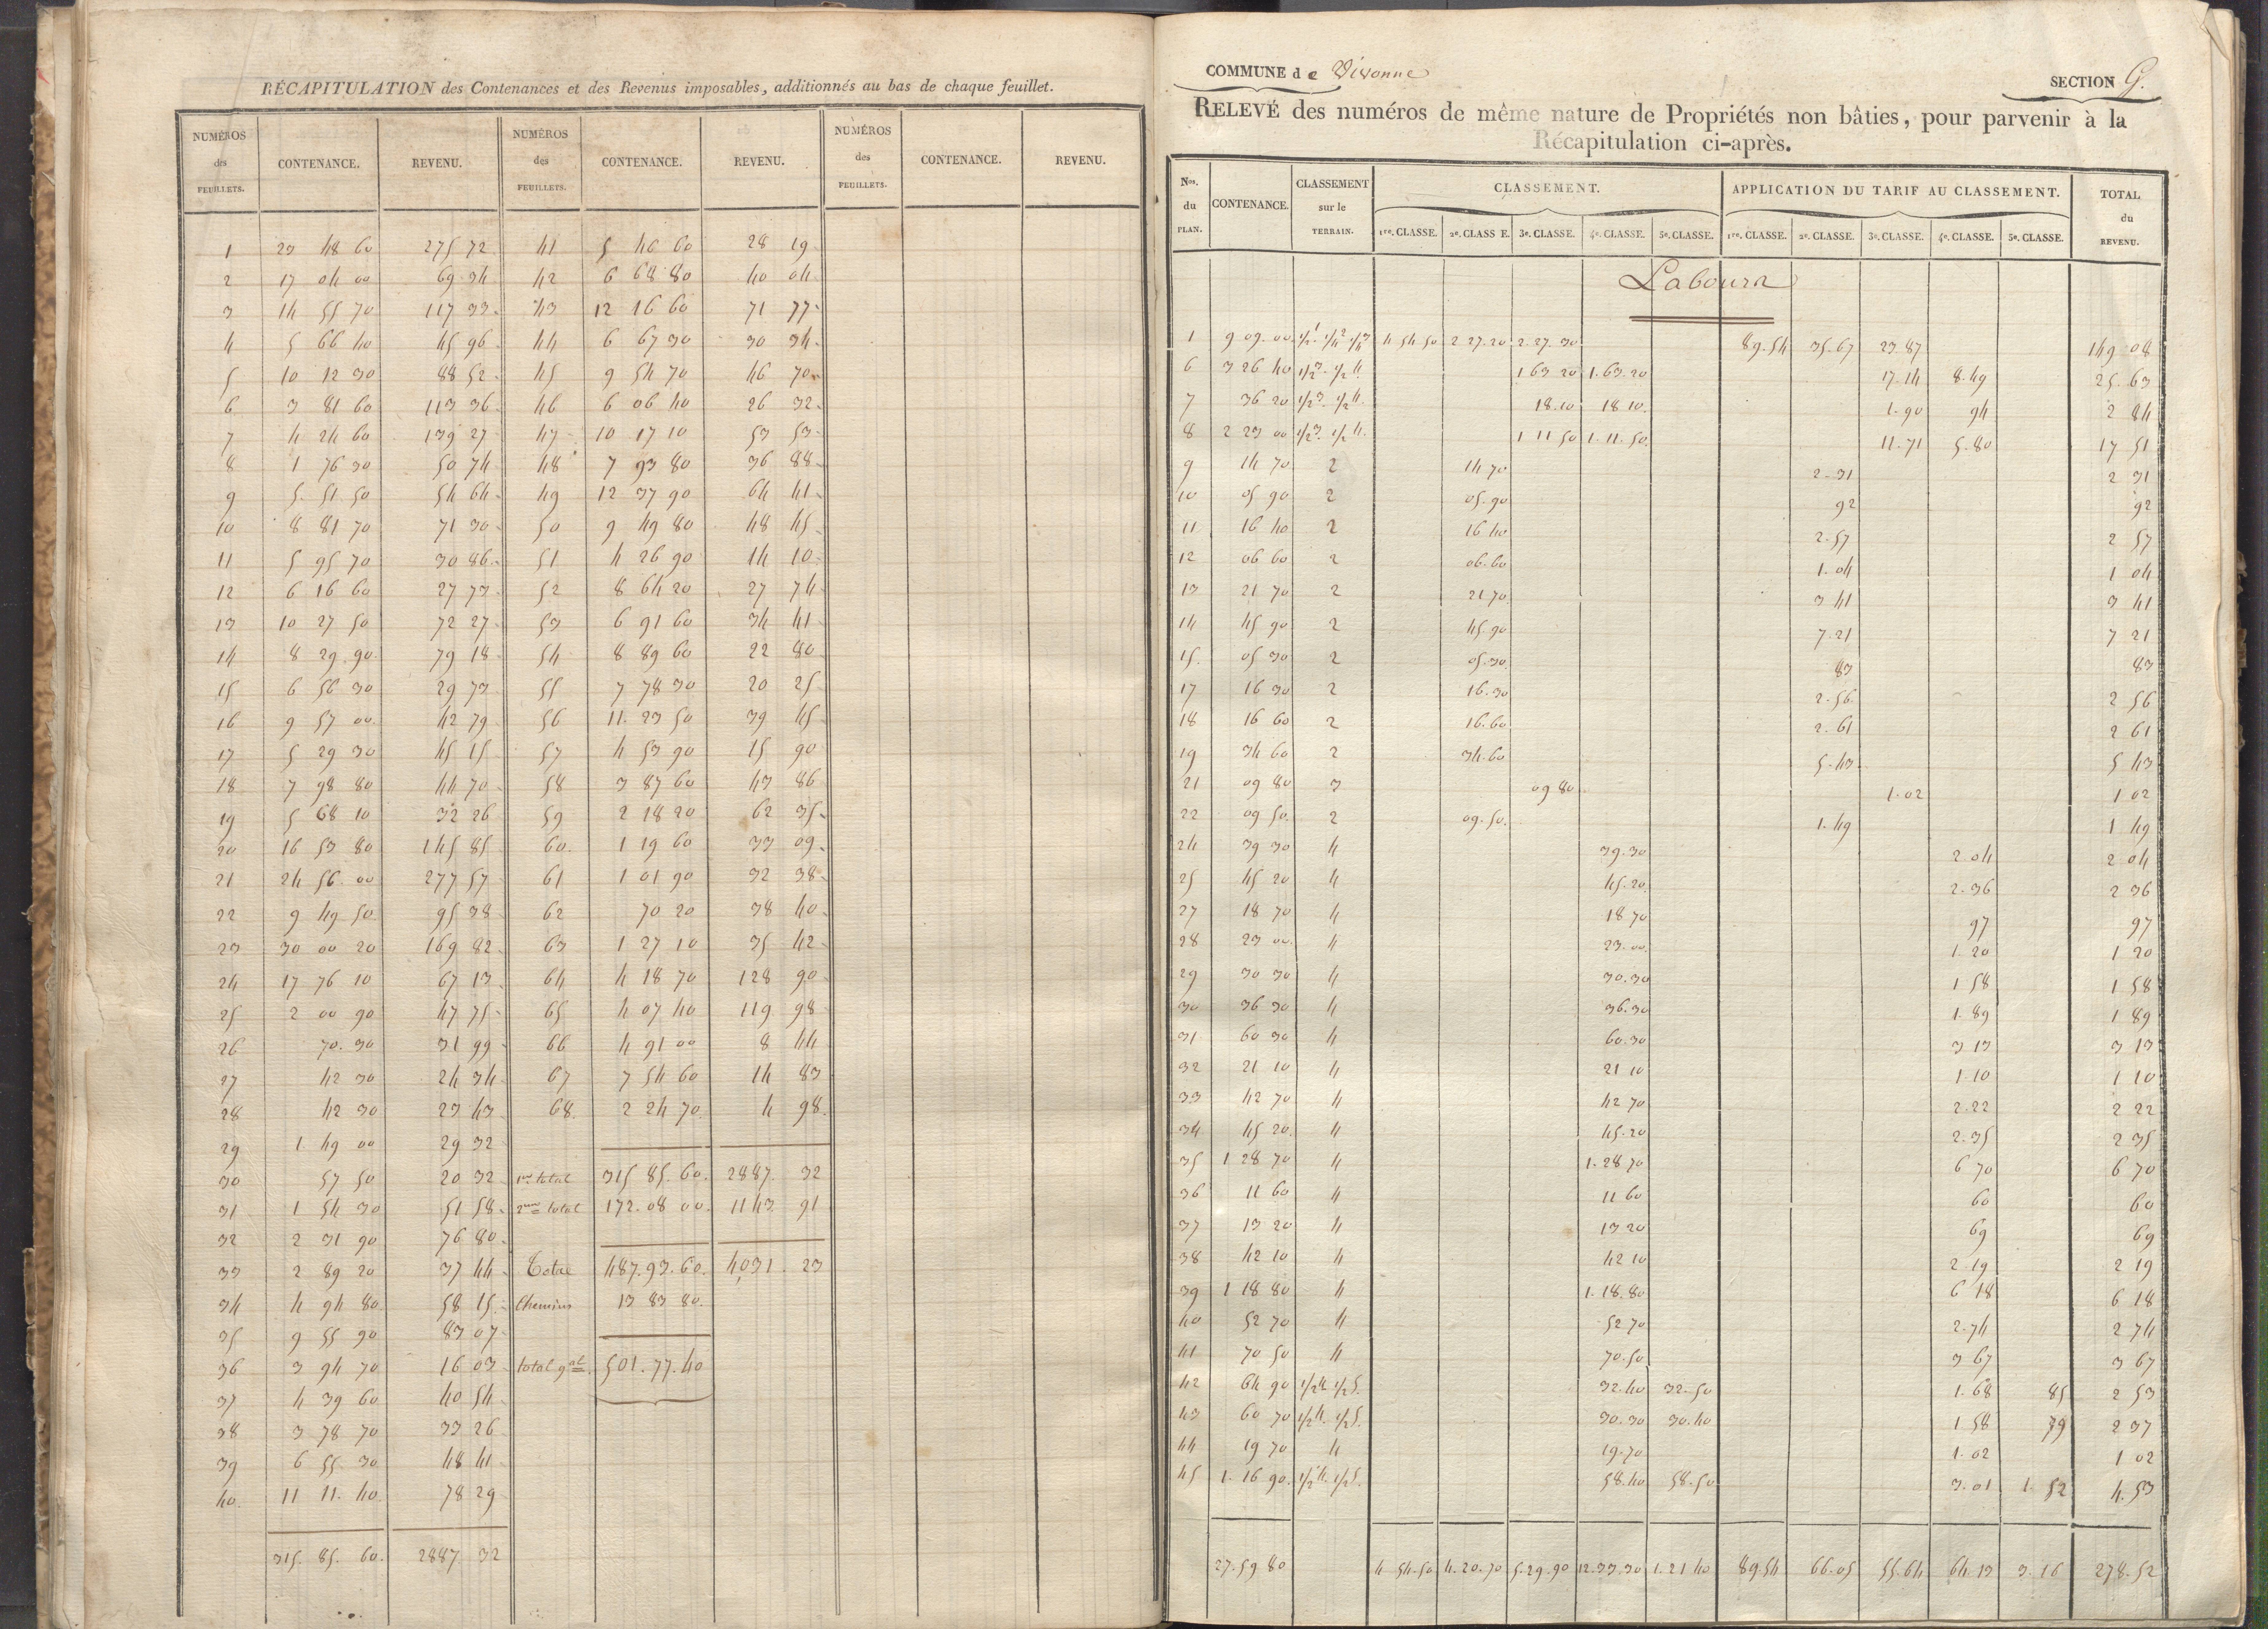 RÉCAPITULATION des Contenances et des Revenus imposables, additionnés au bas de chaque feuillet.
NUMÉROS des FEUILLETS. CONTENANCE. REVENU. NUMÉROS des FEUILLETS. CONTENANCE. REVENU. NUMÉROS des FEUILLETS. CONTENANCE. REVENU.
1 23 48 60 275 72 41 5 46 60 28 19
2 17 04 00 69 34 42 6 68 80 40 04
3 14 55 70 117 33 43 12 16 60 71 77
4 5 66 40 45 96 44 6 67 30 30 34
5 10 12 30 88 52 45 9 54 70 46 70
6 3 81 60 113 36 46 6 06 40 26 32
7 4 24 60 139 27 47 10 17 10 53 53
8 1 76 30 50 74 48 7 93 80 36 88
9 5 51 50 54 64 49 12 37 90 64 41
10 8 81 70 71 30 50 9 49 80 48 45
11 5 95 70 30 86 51 4 26 90 14 10
12 6 16 60 27 73 52 8 64 20 27 74
13 10 27 50 72 27 53 6 91 60 34 41
14 8 29 90 79 18 54 8 89 60 22 80
15 6 56 30 29 73 55 7 78 30 20 25
16 9 57 00 42 79 56 11 23 50 39 45
17 5 29 30 45 15 57 4 53 90 15 90
18 7 98 80 44 70 58 3 87 60 43 86
19 5 68 10 32 26 59 2 18 20 62 35
20 16 53 80 145 85 60 1 19 60 33 09
21 24 56 00 277 57 61 1 01 90 32 38
22 9 49 50 95 38 62 70 20 38 40
23 30 00 20 169 82 63 1 27 10 35 42
24 17 76 10 67 13 64 4 18 70 128 90
25 2 00 90 47 75 65 4 07 40 119 98
26 70 30 31 99 66 4 91 00 8 44
27 42 30 24 34 67 7 54 60 14 83
28 42 30 23 43 68 2 24 70 4 98
29 1 49 00 29 32
30 57 50 20 32 1er total 315 85 60 2887 32
31 1 54 30 51 58 2me total 172 08 00 1143 91
32 2 31 90 76 80
33 2 89 20 37 44 Total 487.93.60 4031 23
34 4 94 80 58 15 Chemins 13 83 80
35 9 55 90 83 07
36 3 94 70 16 03 total gal 501.77.40
37 4 39 60 40 54
38 3 78 70 33 26
39 6 55 30 48 41
40 11 11 40 78 29
315 85 60 2887 32
COMMUNE de Vivonne
SECTION G.
RELEVÉ des numéros de même nature de Propriétés non bâties, pour parvenir à la
Récapitulation ci-après.
Nos. du PLAN. CONTENANCE. CLASSEMENT sur le TERRAIN. CLASSEMENT. APPLICATION DU TARIF AU CLASSEMENT. TOTAL du REVENU.
1re. CLASSE. 2e. CLASSE. 3e. CLASSE. 4e. CLASSE. 5e. CLASSE. 1re. CLASSE. 2e. CLASSE. 3e. CLASSE. 4e. CLASSE. 5e. CLASSE.
Labours
1 9 09 00 1/2 1 1/4 2 1/4 3 4 54 50 2 27 20 2 27 30 89.54 35.67 23.87 149 08
6 3 26 40 1/2 3 1/2 4 1 63 20 1.63.20 17.14 8.49 25 63
7 36 20 1/2 3 1/2 4 18.10 18 10 1.90 94 2 84
8 2 23 00 1/2 3 1/2 4 1 11 50 1.11.50 11.71 5.80 17 51
9 14 70 2 14 70 2.31 2 31
10 05 90 2 05.90 92 92
11 16 40 2 16 40 2.57 2 57
12 06 60 2 06.60 1.04 1 04
13 21 70 2 21 70 3 41 3 41
14 45 90 2 45.90 7.21 7 21
15 05 30 2 05.30 83 83
17 16 30 2 16.30 2.56 2 56
18 16 60 2 16.60 2.61 2 61
19 34 60 2 34.60 5.43 5 43
21 09 80 3 09 80 1.02 1 02
22 09 50 2 09.50 1.49 1 49
24 39 30 4 39.30 2 04 2 04
25 45 20 4 45.20 2.36 2 36
27 18 70 4 18 70 97 97
28 23 00 4 23.00 1.20 1 20
29 30 30 4 30.30 1 58 1 58
30 36 30 4 36.30 1.89 1 89
31 60 30 4 60.30 3 13 3 13
32 21 10 4 21 10 1.10 1 10
33 42 70 4 42 70 2.22 2 22
34 45 20 4 45.20 2.35 2 35
35 1 28 70 4 1.28 70 6 70 6 70
36 11 60 4 11 60 60 60
37 13 20 4 13 20 69 69
38 42 10 4 42 10 2 19 2 19
39 1 18 80 4 1.18.80 6 18 6 18
40 52 70 4 52 70 2.74 2 74
41 70 50 4 70.50 3 67 3 67
42 64 90 1/2 4 1/2 5 32.40 32.50 1.68 85 2 53
43 60 70 1/2 4 1/2 5 30.30 30.40 1.58 79 2 37
44 19 70 4 19.70 1.02 1 02
45 1.16 90 1/2 4 1/2 5 58.40 58.50 3.01 1.52 4.53
27.59 80 4 54.50 4.20.70 5.29.90 12.33.30 1.21 40 89.54 66.05 55.64 64.13 3.16 278.52